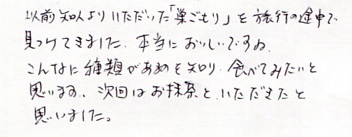 以前知人よりいただいた「巣ごもり」を旅行の途中で
見つけてきました。本当においしいですね。
こんなに種類があるのを知り、食べてみたいと
思います。次回はお抹茶といただきたいと
思いました。